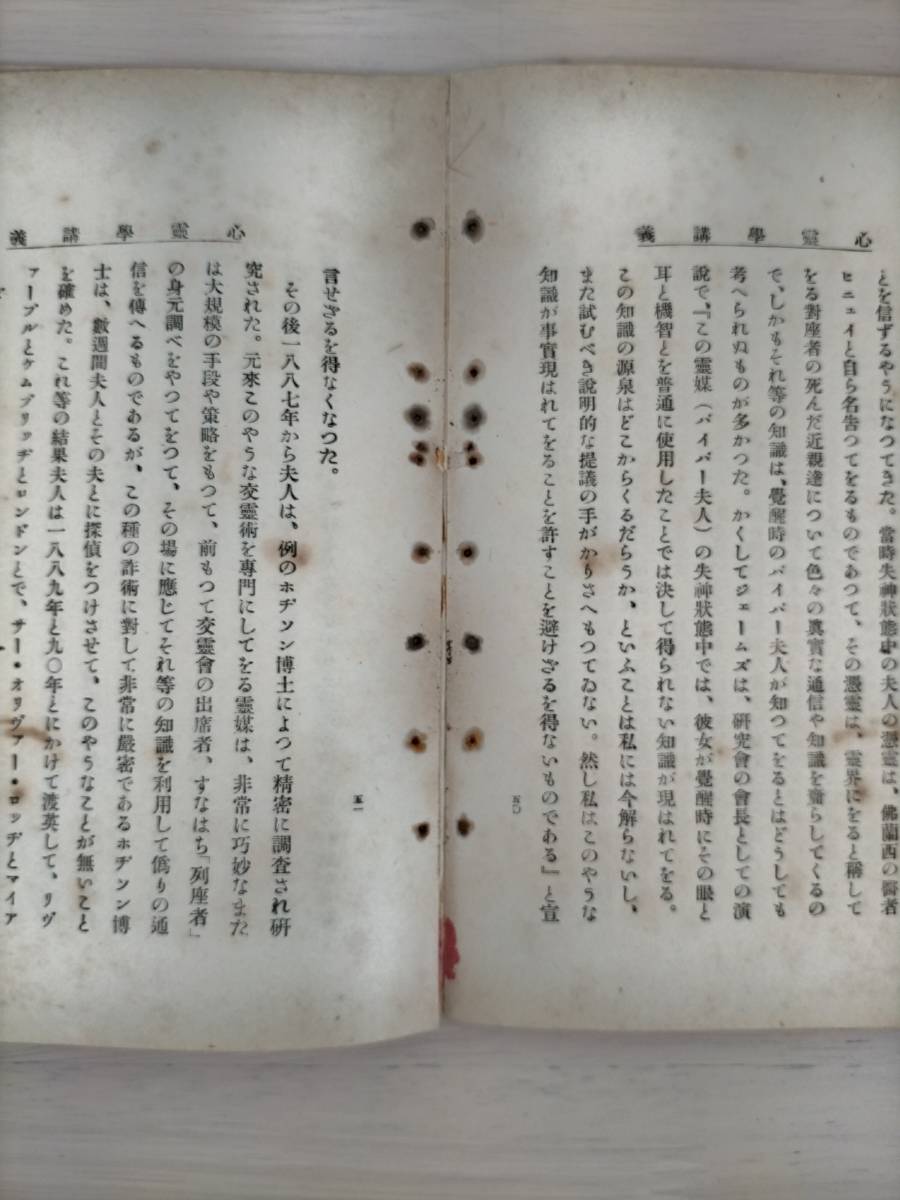 心靈學講義
とを信ずるやうになつてきた。當時失神狀態中の夫人の憑靈は、佛蘭西の醫者
ヒニユイと自ら名吿つてをるものであつて、その憑靈は、靈界にをると稱して
をる對座者の死んだ近親達について色々の眞實な通信や知識を齎らしてくるの
で、しかもそれ等の知識は、覺醒時のパイパー夫人が知つてをるとはどうしても
考へられぬものが多かつた。かくしてジェームズは、硏究會の會長としての演
說で、『この靈媒(パイパー夫人)の失神狀態中では、彼女が覺醒時にその眼と
耳と機智とを普通に使用したことでは決して得られない知識が現はれてをる。
この知識の源泉はどこからくるだらうか、といふことは私には今解らないし、
また試むべき說明的な提議の手がかりさへもつてゐない。然し私はこのやうな
知識が事實現はれてをることを許すことを避けざるを得ないものである』と宣
五〇
心靈學講義
言せざるを得なくなつた。
その後一八八七年から夫人は、例のホヂソン博士によつて精密に調査され硏
究された。元來このやうな交靈術を專門にしてをる靈媒は、非常に巧妙なまた
は大規模の手段や策略をもつて、前もつて交靈會の出席者、すなはち「列座者」
の身元調べをやつてをつて、その場に應じてそれ等の知識を利用して僞りの通
信を傳へるものであるが、この種の詐術に對して非常に嚴密であるホヂソン博
士は、數週間夫人とその夫とに探偵をつけさせて、このやうなことが無いこと
を確めた。これ等の結果夫人は一八八九年と九〇年とにかけて渡英して、リヴ
ァープルとケムブリッヂとロンドンとで、サー・オリヴァー・ロッヂとマイア
五一